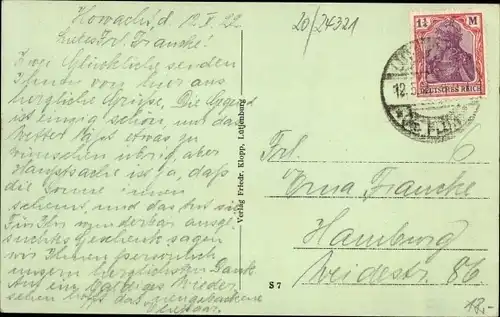 Howacht, d. 12.V.22
20/24321
Liebes Frl. Francke!
Zwei Glückliche senden
Ihnen von hier aus
herzliche Grüsse. Die Gegend
ist einzig schön und das
Wetter lässt etwas zu
wünschen übrig, aber
Hauptsache ist ja, daß
die Sonne innen
scheint und das tut sie.
Für Ihr wunderbar ausge-
suchtes Geschenk sagen
wir Ihnen persönlich
unsern herzlichsten Dank.
Auf ein baldiges Wieder
sehen hofft das neugebackene
Ehepaar.
Verlag Friedr. Klopp, Lütjenburg
S 7
1¼ M
DEUTSCHES REICH
12.5.
Frl.
Erna Francke
Hamburg
Weidestr. 86
18,-